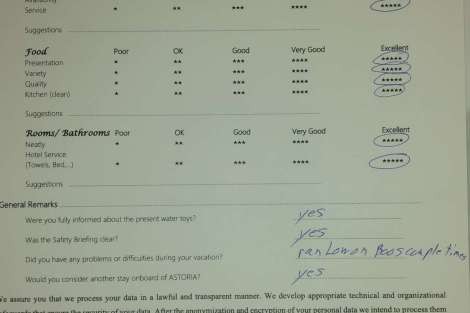 Service * ** *** **** *****
Suggestions
Food Poor OK Good Very Good Excellent
Presentation * ** *** **** *****
Variety * ** *** **** *****
Quality * ** *** **** *****
Kitchen (clean) * ** *** **** *****
Suggestions
Rooms/ Bathrooms Poor OK Good Very Good Excellent
Neatly * ** *** **** *****
Hotel Service
(Towels, Bed,...) * ** *** **** *****
Suggestions
General Remarks
Were you fully informed about the present water toys? yes
Was the Safety Briefing clear? yes
Did you have any problems or difficulties during your vacation? ran Low on couple times
Would you consider another stay onboard of ASTORIA? yes
We assure you that we process your data in a lawful and transparent manner. We develop appropriate technical and organizational
that ensure the security of your data. After the anonymization and encryption of your personal data we intend to process them